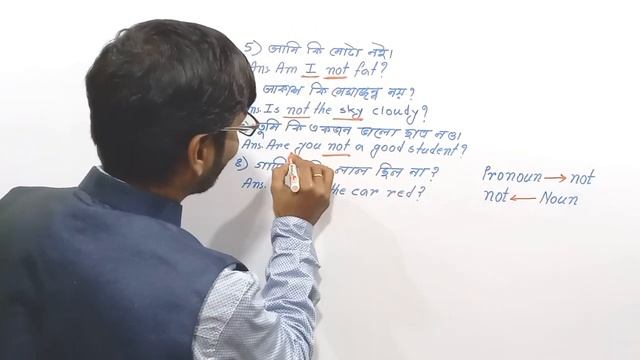 5) আমি কি মোটা নই।
Ans. Am I not fat?
আকাশ কি মেঘাচ্ছন্ন নয়?
Ans. Is not the sky cloudy?
তুমি কি একজন ভালো ছাত্র নও।
Ans. Are you not a good student?
৪) গাড়ি লাল ছিল না?
Ans. the car red?
Pronoun → not
not ← Noun